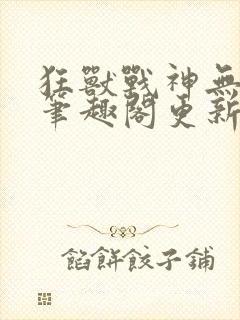 狂獸戰神無
筆趣閣更新
餡餅餃子鋪